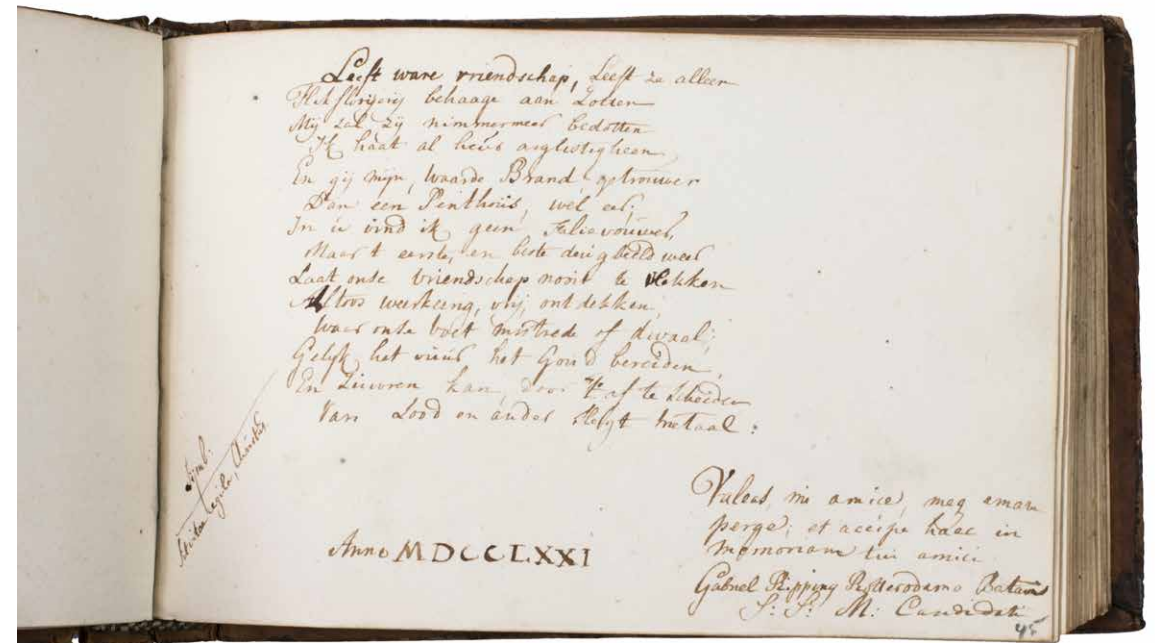 Leeft ware vriendschap, Leeft ze alleen
behaage aan Zotten
Mij zal zij nimmermeer bedotten
Ik haat al heur arglistigheen
En gij mijn, waarde Brand getrouwer
Dan een Pentheus, wel eer,
In u vind ik geen Falievouwer,
Maar t eerste, en beste deugdbeeld weer
Laat onse vriendschap nooit te vlekken
Altoos weerkeerig, vrij, ontdekken,
Waar onse voet mistrede of dwaal;
Gelijk het vuur het Goud bereiden,
En Zuivren kan, door 't af te scheiden
Van Lood en ander slegt metaal:
Symb:
Christus
Anno MDCCLXXI
Valeas, mi amice, meq amare
perge; et accipe haec in
memoriam tui amici
Gabriel Ripping Rotterodamo Batavus
S: S: M: Candidat:
45